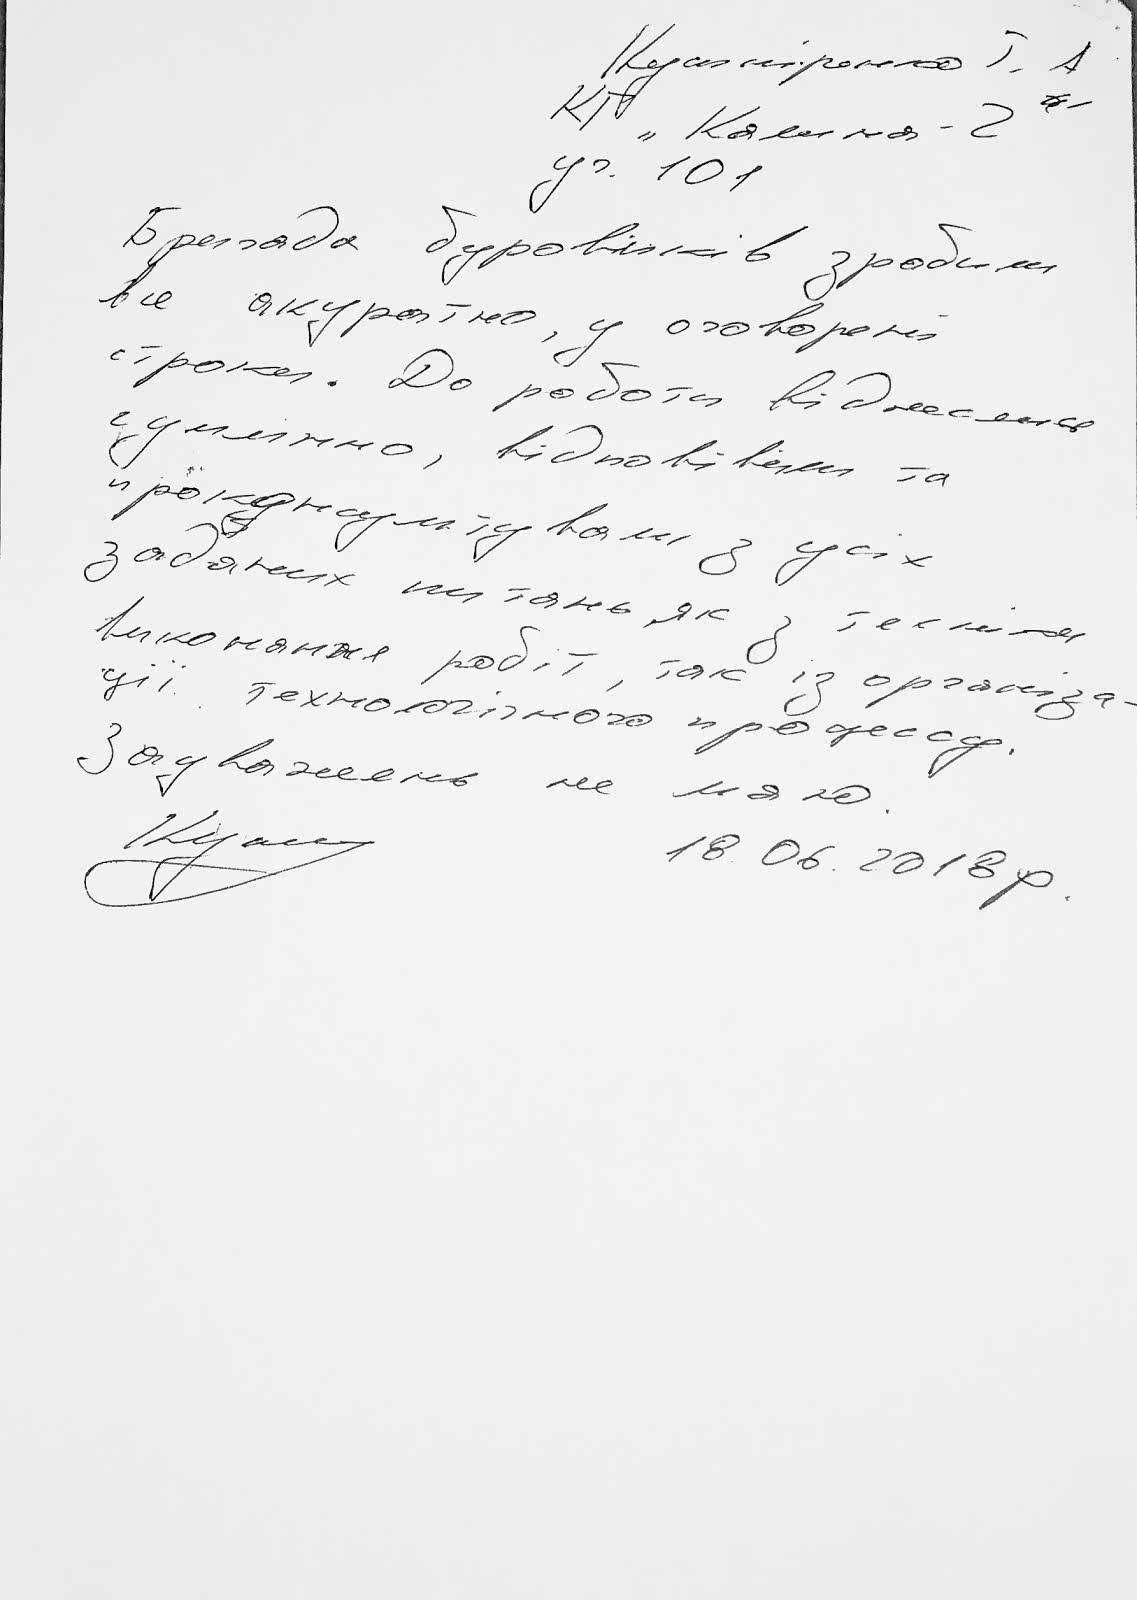 Кушніренко Т. А
КГ "Калина-2"
уч. 101
Бригада буровиків зробили
все акуратно, у оговорені
строки. До роботи віднеслись
сумлінно, відповіли та
проконсультували з усіх
заданих питань як з техніки
виконання робіт, так із організа-
ції технологічного процессу.
Зауважень не маю.
18.06.2018р.